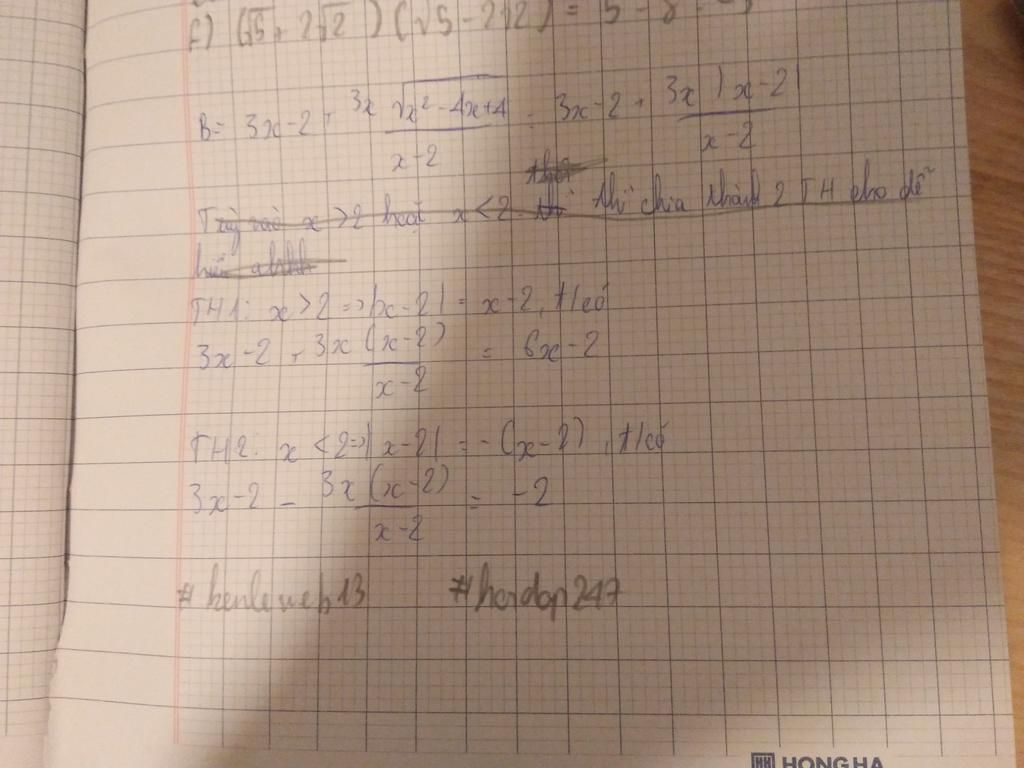 f) (√5 + 2√2) (√5 - 2√2) = 5 - 8 = -3
B = 3x-2 + 3x √x²-4x+4 / x-2 = 3x-2 + 3x |x-2| / x-2
x > 2 hoặc x < 2 thì chia thành 2 TH cho dễ
TH1: x > 2 => |x-2| = x-2, ta có
3x-2 + 3x (x-2) / x-2 = 6x-2
TH2: x < 2 => |x-2| = -(x-2), ta có
3x-2 - 3x (x-2) / x-2 = -2
#hoidap247
HH HONG HA